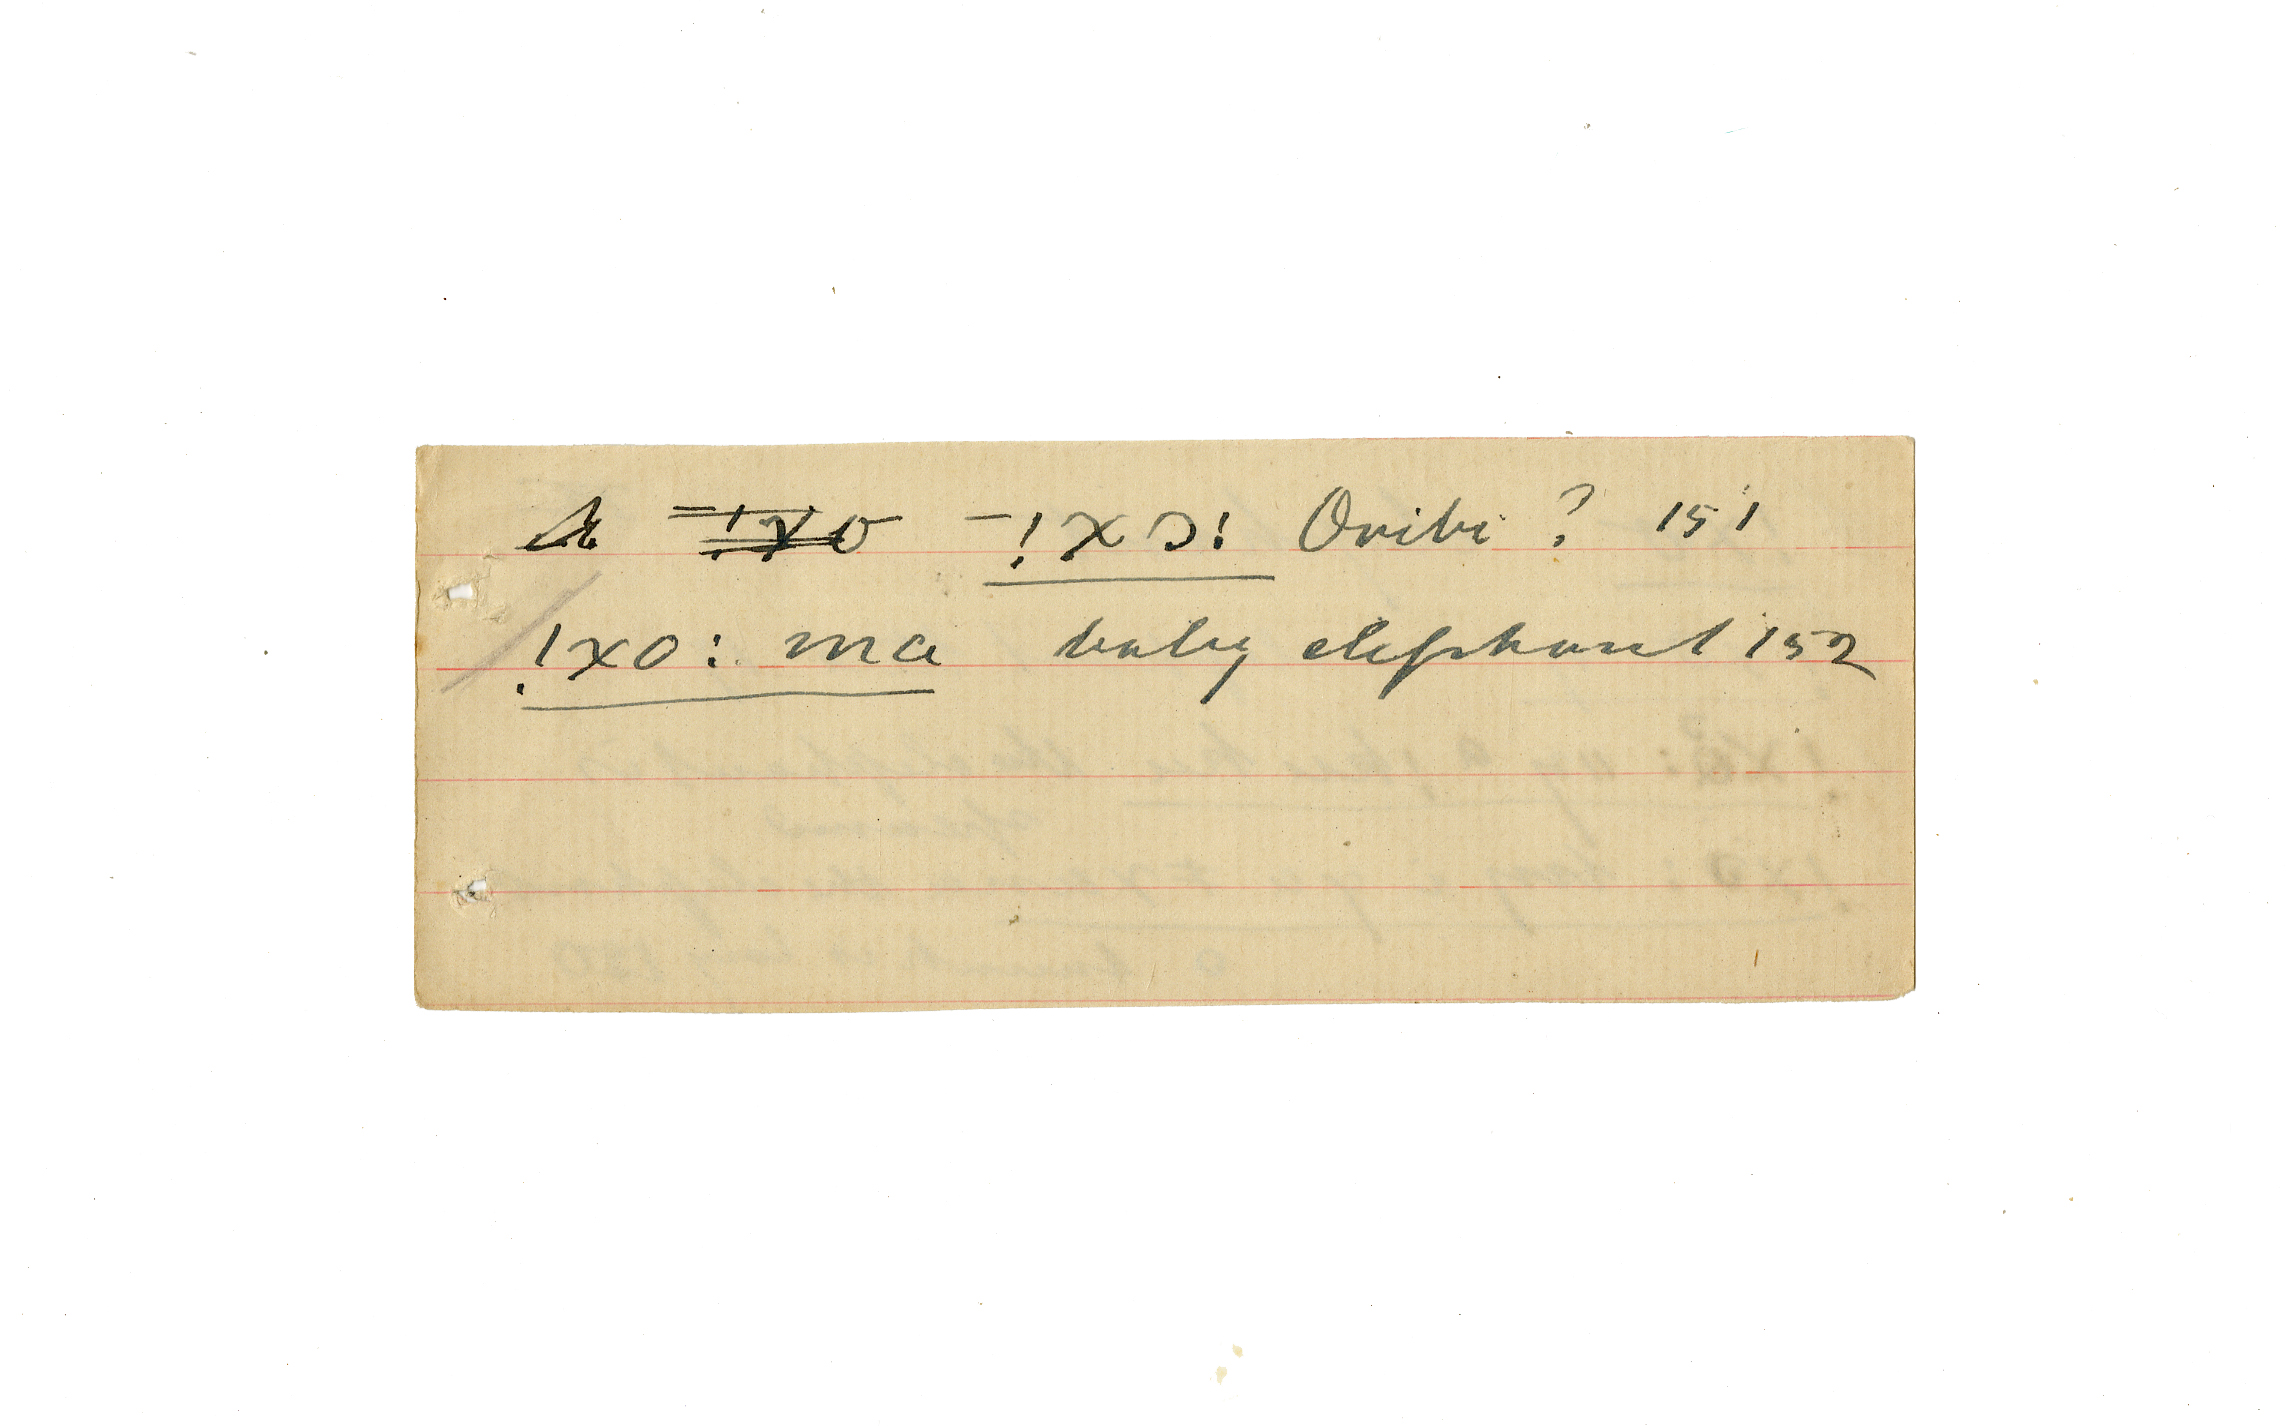 !xɔ: Oribi ? 151
!xo: ma baby elephant 152